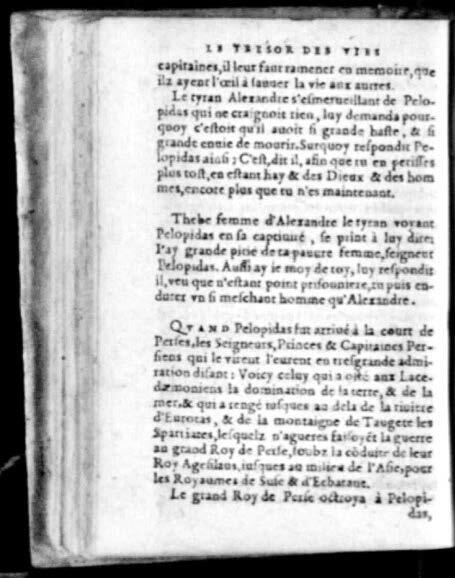 LE TRESOR DES VIES
capitaines, il leur faut ramener en memoire, que
ilz ayent l'œil à sauuer la vie aux autres.
Le tyran Alexandre s'esmerueillant de Pelo-
pidas qui ne craignoit rien, luy demanda pour-
quoy c'estoit qu'il auoit si grande haste, & si
grande enuie de mourir. Surquoy respondit Pe-
lopidas ainsi; C'est, dit il, afin que tu en perisses
plus tost, en estant hay & des Dieux & des hom
mes, encore plus que tu n'es maintenant.
Thebe femme d'Alexandre le tyran voyant
Pelopidas en sa captiuité, se print à luy dire:
I'ay grande pitié de ta pauure femme, seigneur
Pelopidas. Aussi ay ie moy de toy, luy respondit
il, veu que n'estant point prisonniere, tu puis en-
durer vn si meschant homme qu'Alexandre.
QVAND Pelopidas fut arriué à la court de
Perses, les Seigneurs, Princes & Capitaines Per-
siens qui le virent l'eurent en tresgrande admi-
ration disant: Voicy celuy qui a osté aux Lace-
dæmoniens la domination de la terre, & de la
mer, & qui a rengé iusques au dela de la riuiere
d'Eurotas, & de la montaigne de Taugete les
Spartiates, lesquelz n'agueres faisoyēt la guerre
au grand Roy de Perse, soubz la cōduite de leur
Roy Agesilaus, iusques au milieu de l'Asie, pour
les Royaumes de Suse & d'Ecbatane.
Le grand Roy de Perse octroya à Pelopi-
das,